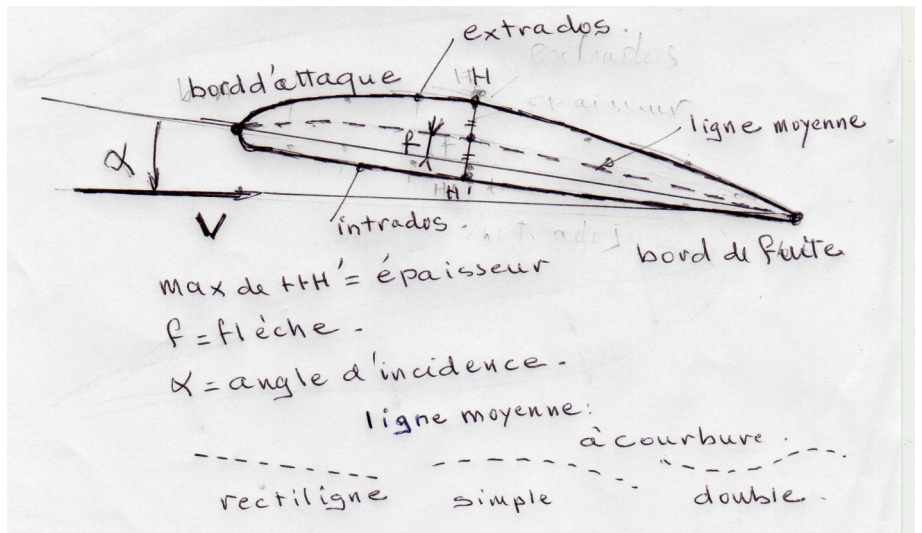 extrados.
bord d'attaque
H
ligne moyenne
f
α
H'
V
intrados.
bord de fuite
max de HH' = épaisseur
f = flèche.
α = angle d'incidence.
ligne moyenne:
à courbure.
rectiligne simple double.